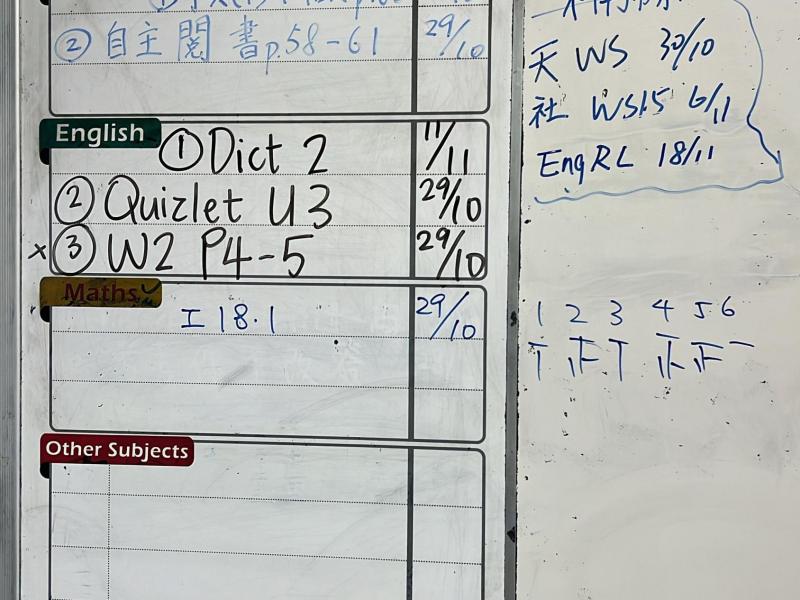 ② 自主閱書p.58-61 29/10
English
① Dict 2 11/11
② Quizlet U3 29/10
×③ W2 P4-5 29/10
Maths
工18.1 29/10
Other Subjects
天 WS 30/10
社 WS15 6/11
Eng RL 18/11
1 2 3 4 5 6